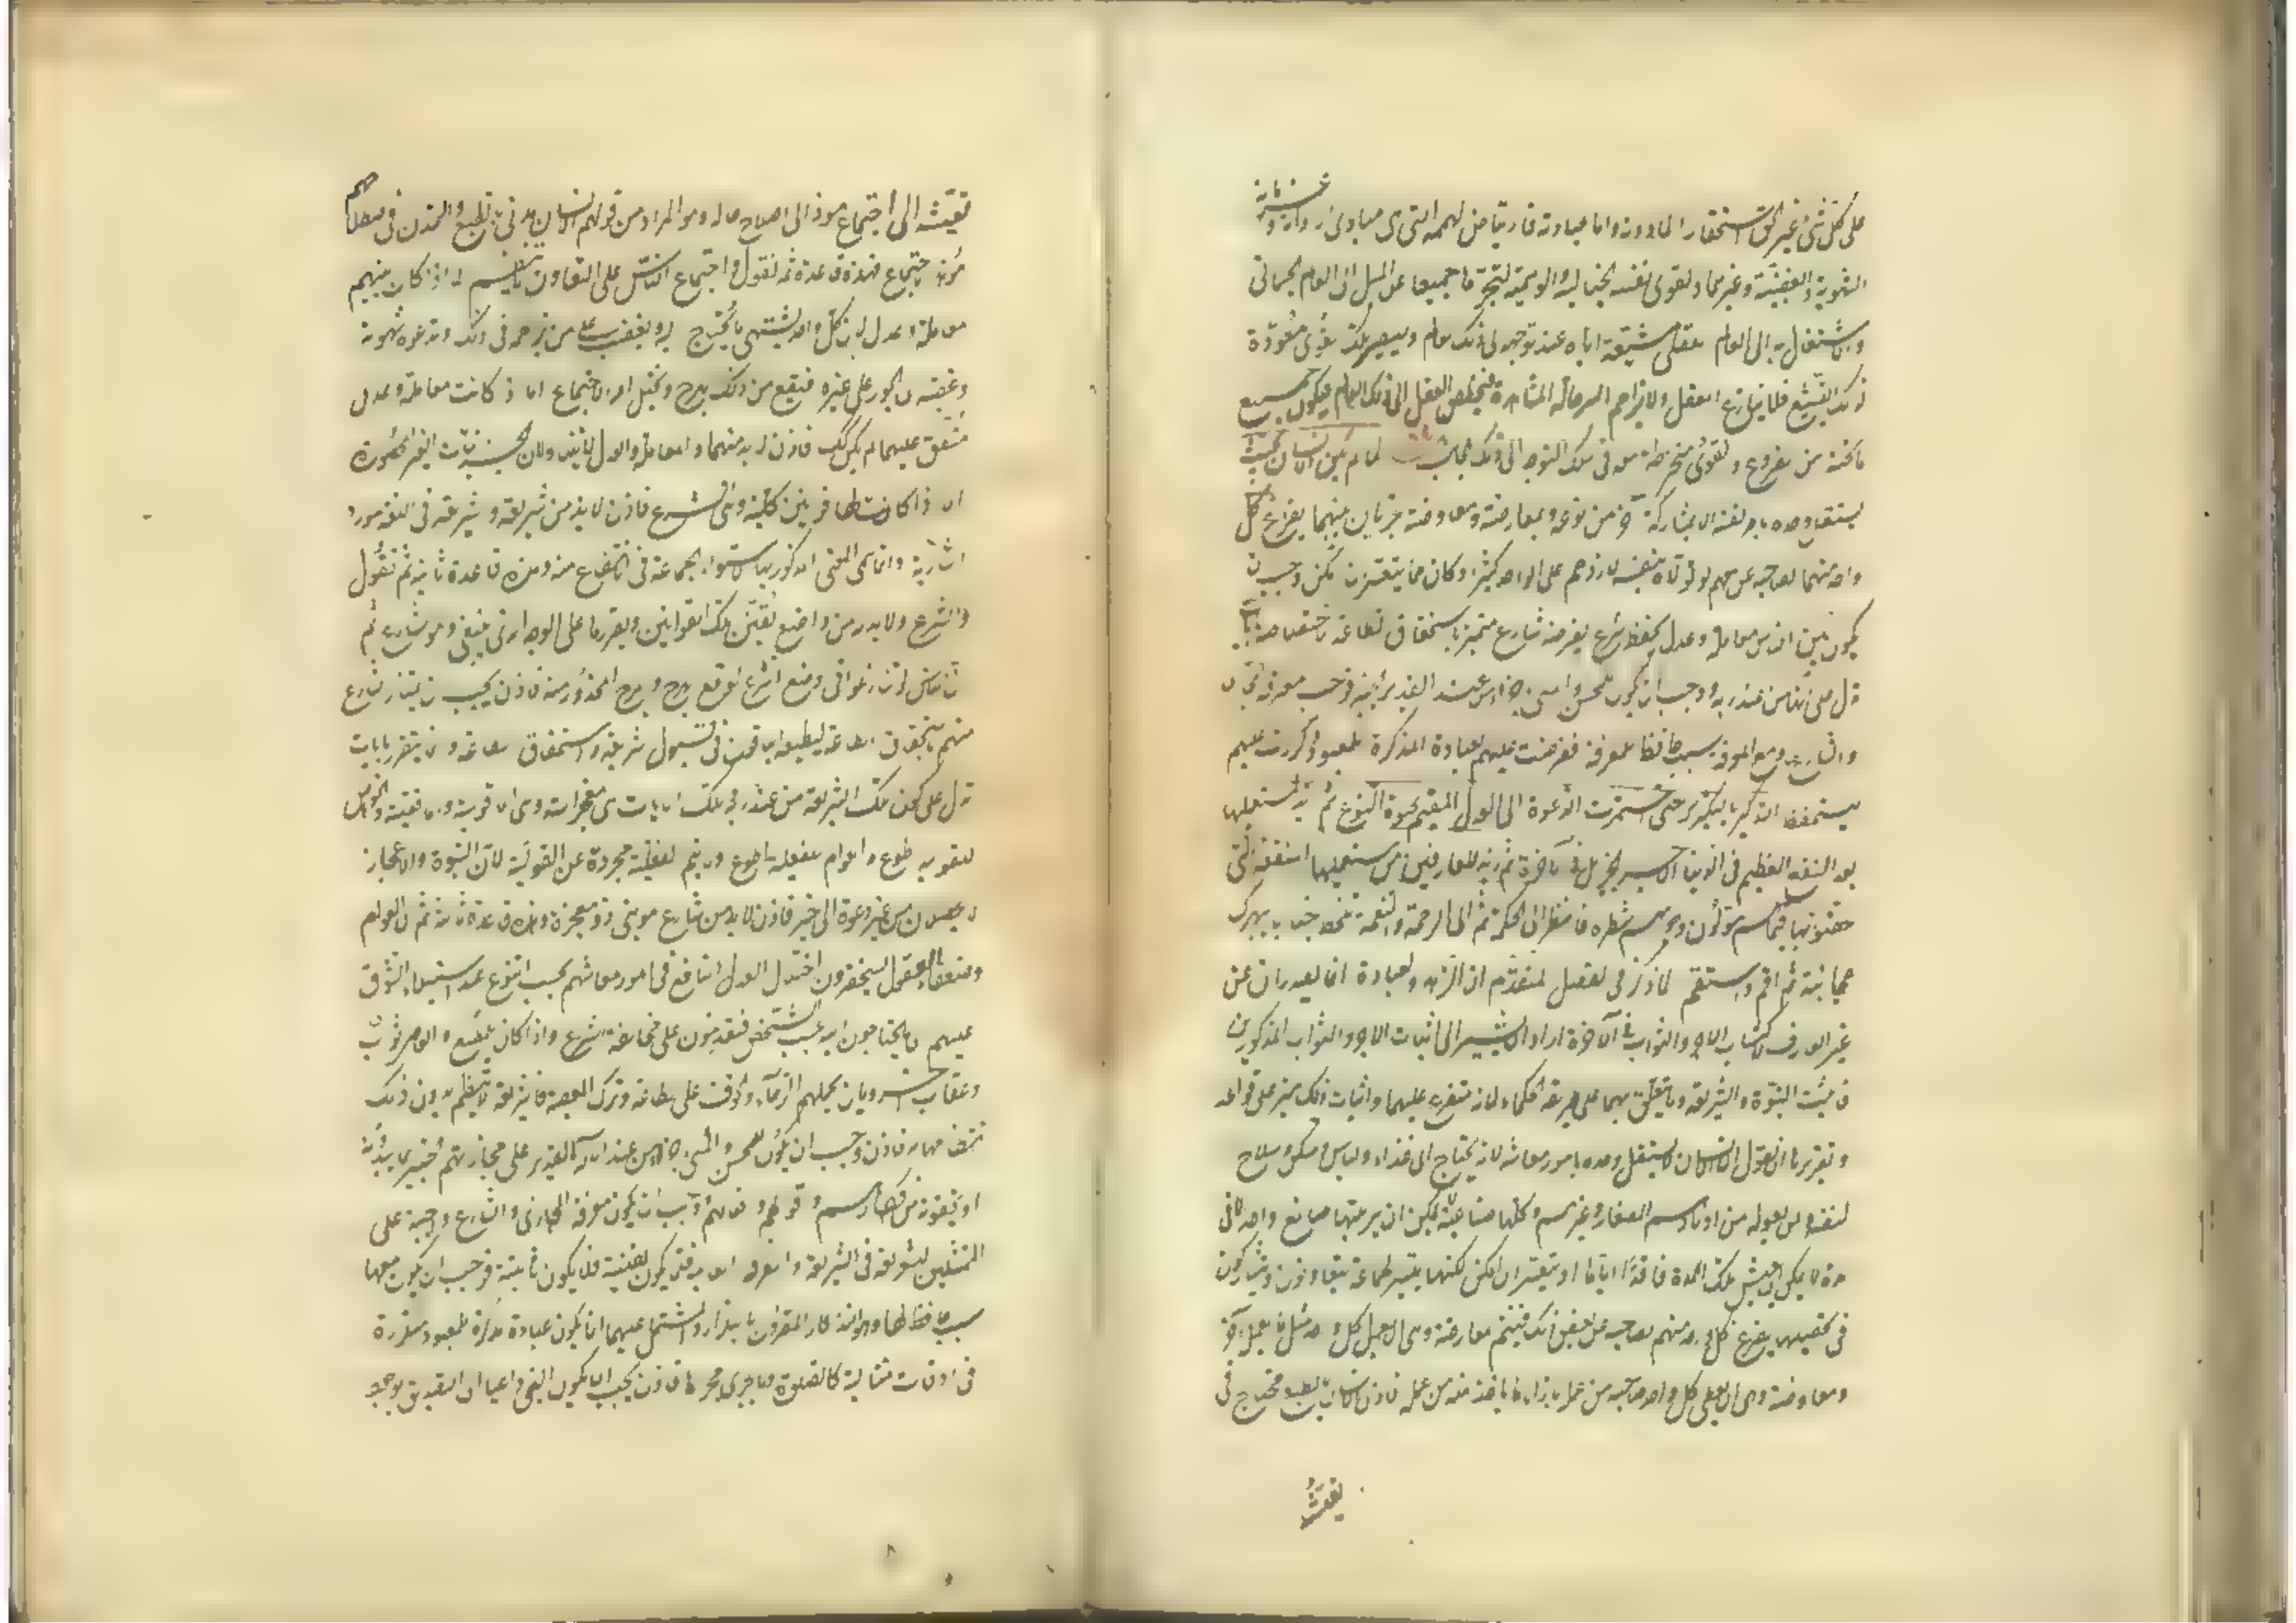 على كل شئ غير الحق استحقارا لما دونه واما عبادته فارتياض لهممه التى هى مبادى ارادته وعزماته
الشهوية والغضبية وغيرهما ولقوى نفسه الخيالية والوهمية لتجرها جميعا عن الميل الى العالم الجسمانى
والاشتغال به الى العالم العقلى مشيعة اياه عند توجهه الى ذلك العالم وليصير تلك القوى معودة
لذلك التشيع فلا ينازع العقل ولا يزاحم السر حالة المشاهدة فيخلص العقل الى ذلك العالم فيكون جميع
ما تحته من الفروع والقوى منخرطة معه فى سلك التوجه الى ذلك الجانب اشارة لما لم يكن الانسان بحيث
يستقل وحده بامر نفسه الا بمشاركة آخر من نوعه وبمعارضة ومعاوضة يجريان بينهما يفرغ كل
واحد منهما لصاحبه عن مهم لو تولاه بنفسه لازدحم على الواحد كثير وكان مما يتعسر ان امكن وجب ان
يكون بين الناس معاملة وعدل يحفظه شرع يفرضه شارع متميز باستحقاق الطاعة لاختصاصه بآيات
تدل على انها من عند ربه ووجب ان يكون للمحسن والمسئ جزاء من عند القدير الخبير فوجب معرفة المجازى
والشارع ومع المعرفة سبب حافظ للمعرفة ففرضت عليهم العبادة المذكرة للمعبود وكررت عليهم
ليستحفظ التذكير بالتكرير حتى استمرت الدعوة الى العدل المقيم لحيوة النوع ثم زيد لمستعمليها
بعد النفع العظيم فى الدنيا الاجر الجزيل فى الآخرة ثم زيد للعارفين من مستعمليها المنفعة التى
خصوا بها فيما هم مولون وجوههم شطره فانظر الى الحكمة ثم الى الرحمة والنعمة تلحظ جنابا يبهرك
عجائبه ثم اقم واستقم لما ذكر فى الفصل المتقدم ان الزهد والعبادة انما يصدران عن
غير العارف لاكتساب الاجر والثواب فى الآخرة اراد ان يشير الى اثبات الاجر والثواب المذكورين
فاثبت النبوة والشريعة وما يتعلق بهما على طريقة الحكماء لانه متفرع عليهما واثبات ذلك مبنى على قواعد
وتقريرها ان نقول الانسان لا يستقل وحده بامور معاشه لانه يحتاج الى غذاء ولباس ومسكن وسلاح
لنفسه ولمن يعوله من اولاده الصغار وغيرهم وكلها صناعية لا يمكن ان يرتبها صانع واحد الا فى
مدة لا يمكن ان يعيش تلك المدة فاقدا اياها او يتعسر ان امكن لكنها يتيسر لجماعة يتعاونون ويتشاركون
فى تحصيلها يفرغ كل واحد منهم لصاحبه عن بعض ذلك فيتم بمعارضة وهى ان يعمل كل واحد مثل ما يعمله الآخر
ومعاوضة وهى ان يعطى كل واحد صاحبه من عمله بازاء ما ياخذ منه من عمله فاذن الانسان بالطبع محتاج فى
تعيشه
تعيشه الى اجتماع مؤد الى اصلاح حاله وهو المراد من قولهم الانسان مدنى بالطبع والتمدن فى اصطلاحهم
هو هذا الاجتماع فهذه قاعدة ثم نقول واجتماع الناس على التعاون لا ينتظم الا اذا كان بينهم
معاملة وعدل لان كل واحد يشتهى ما يحتاج اليه ويغضب على من يزاحمه فى ذلك وتدعوه شهوته
وغضبه الى الجور على غيره فيقع من ذلك الهرج ويختل امر الاجتماع اما اذا كانت معاملة وعدل
متفق عليهما لم يكن كذلك فاذن لا بد منهما والمعاملة والعدل لا يتناولان الجزئيات الغير المحصورة
الا اذا كانت لها قوانين كلية وهى الشرع فاذن لا بد من شريعة والشريعة فى اللغة مورد
الشاربة وانما سمى المعنى المذكور بها لاستواء الجماعة فى الانتفاع منه وهذه قاعدة ثانية ثم نقول
والشرع لا بد له من واضع يقنن تلك القوانين ويقررها على الوجه الذى ينبغى وهو الشارع ثم
ان الناس لو تنازعوا فى وضع الشرع لوقع الهرج والمرج المحذور منه فاذن يجب ان يمتاز الشارع
منهم باستحقاق الطاعة ليطيعه الباقون فى قبول الشريعة واستحقاق الطاعة انما يتقرر بآيات
تدل على كون تلك الشريعة من عند ربه وتلك الآيات هى معجزاته وهى اما قولية واما فعلية والخواص
للقولية اطوع والعوام للفعلية اطوع ولا يتم الفعلية مجردة عن القولية لان النبوة والاعجاز
لا يحصلان من غير دعوة الى خير فاذن لا بد من شارع هو نبى ذو معجزة وهذه قاعدة ثالثة ثم ان العوام
وضعفاء العقول يستحقرون اختلال العدل النافع فى امور معاشهم بحسب النوع عند استيلاء الشوق
عليهم الى ما يحتاجون اليه بحسب الشخص فيقدمون على مخالفة الشرع واذا كان للمطيع والعاصى ثواب
وعقاب اخرويان يحملهم الرجاء والخوف على الطاعة وترك المعصية فالشريعة لا ينتظم بدون ذلك
انتظامها به فاذن وجب ان يكون للمحسن والمسئ جزاء من عند الاله القدير على مجازاتهم الخبير بما يبدونه
او يخفونه من افكارهم واقوالهم وافعالهم ووجب ان يكون معرفة المجازى والشارع واجبة على
الممتثلين للشريعة فى الشريعة والمعرفة العامية قلما يكون يقينية فلا يكون ثابتة فوجب ان يكون معها
سبب حافظ لها وهو التذكار المقرون بالتكرار والمشتمل عليهما انما يكون عبادة مذكرة للمعبود مكررة
فى اوقات متتالية كالصلوة وما يجرى مجراها فاذن يجب ان يكون النبى داعيا الى التصديق بوجود